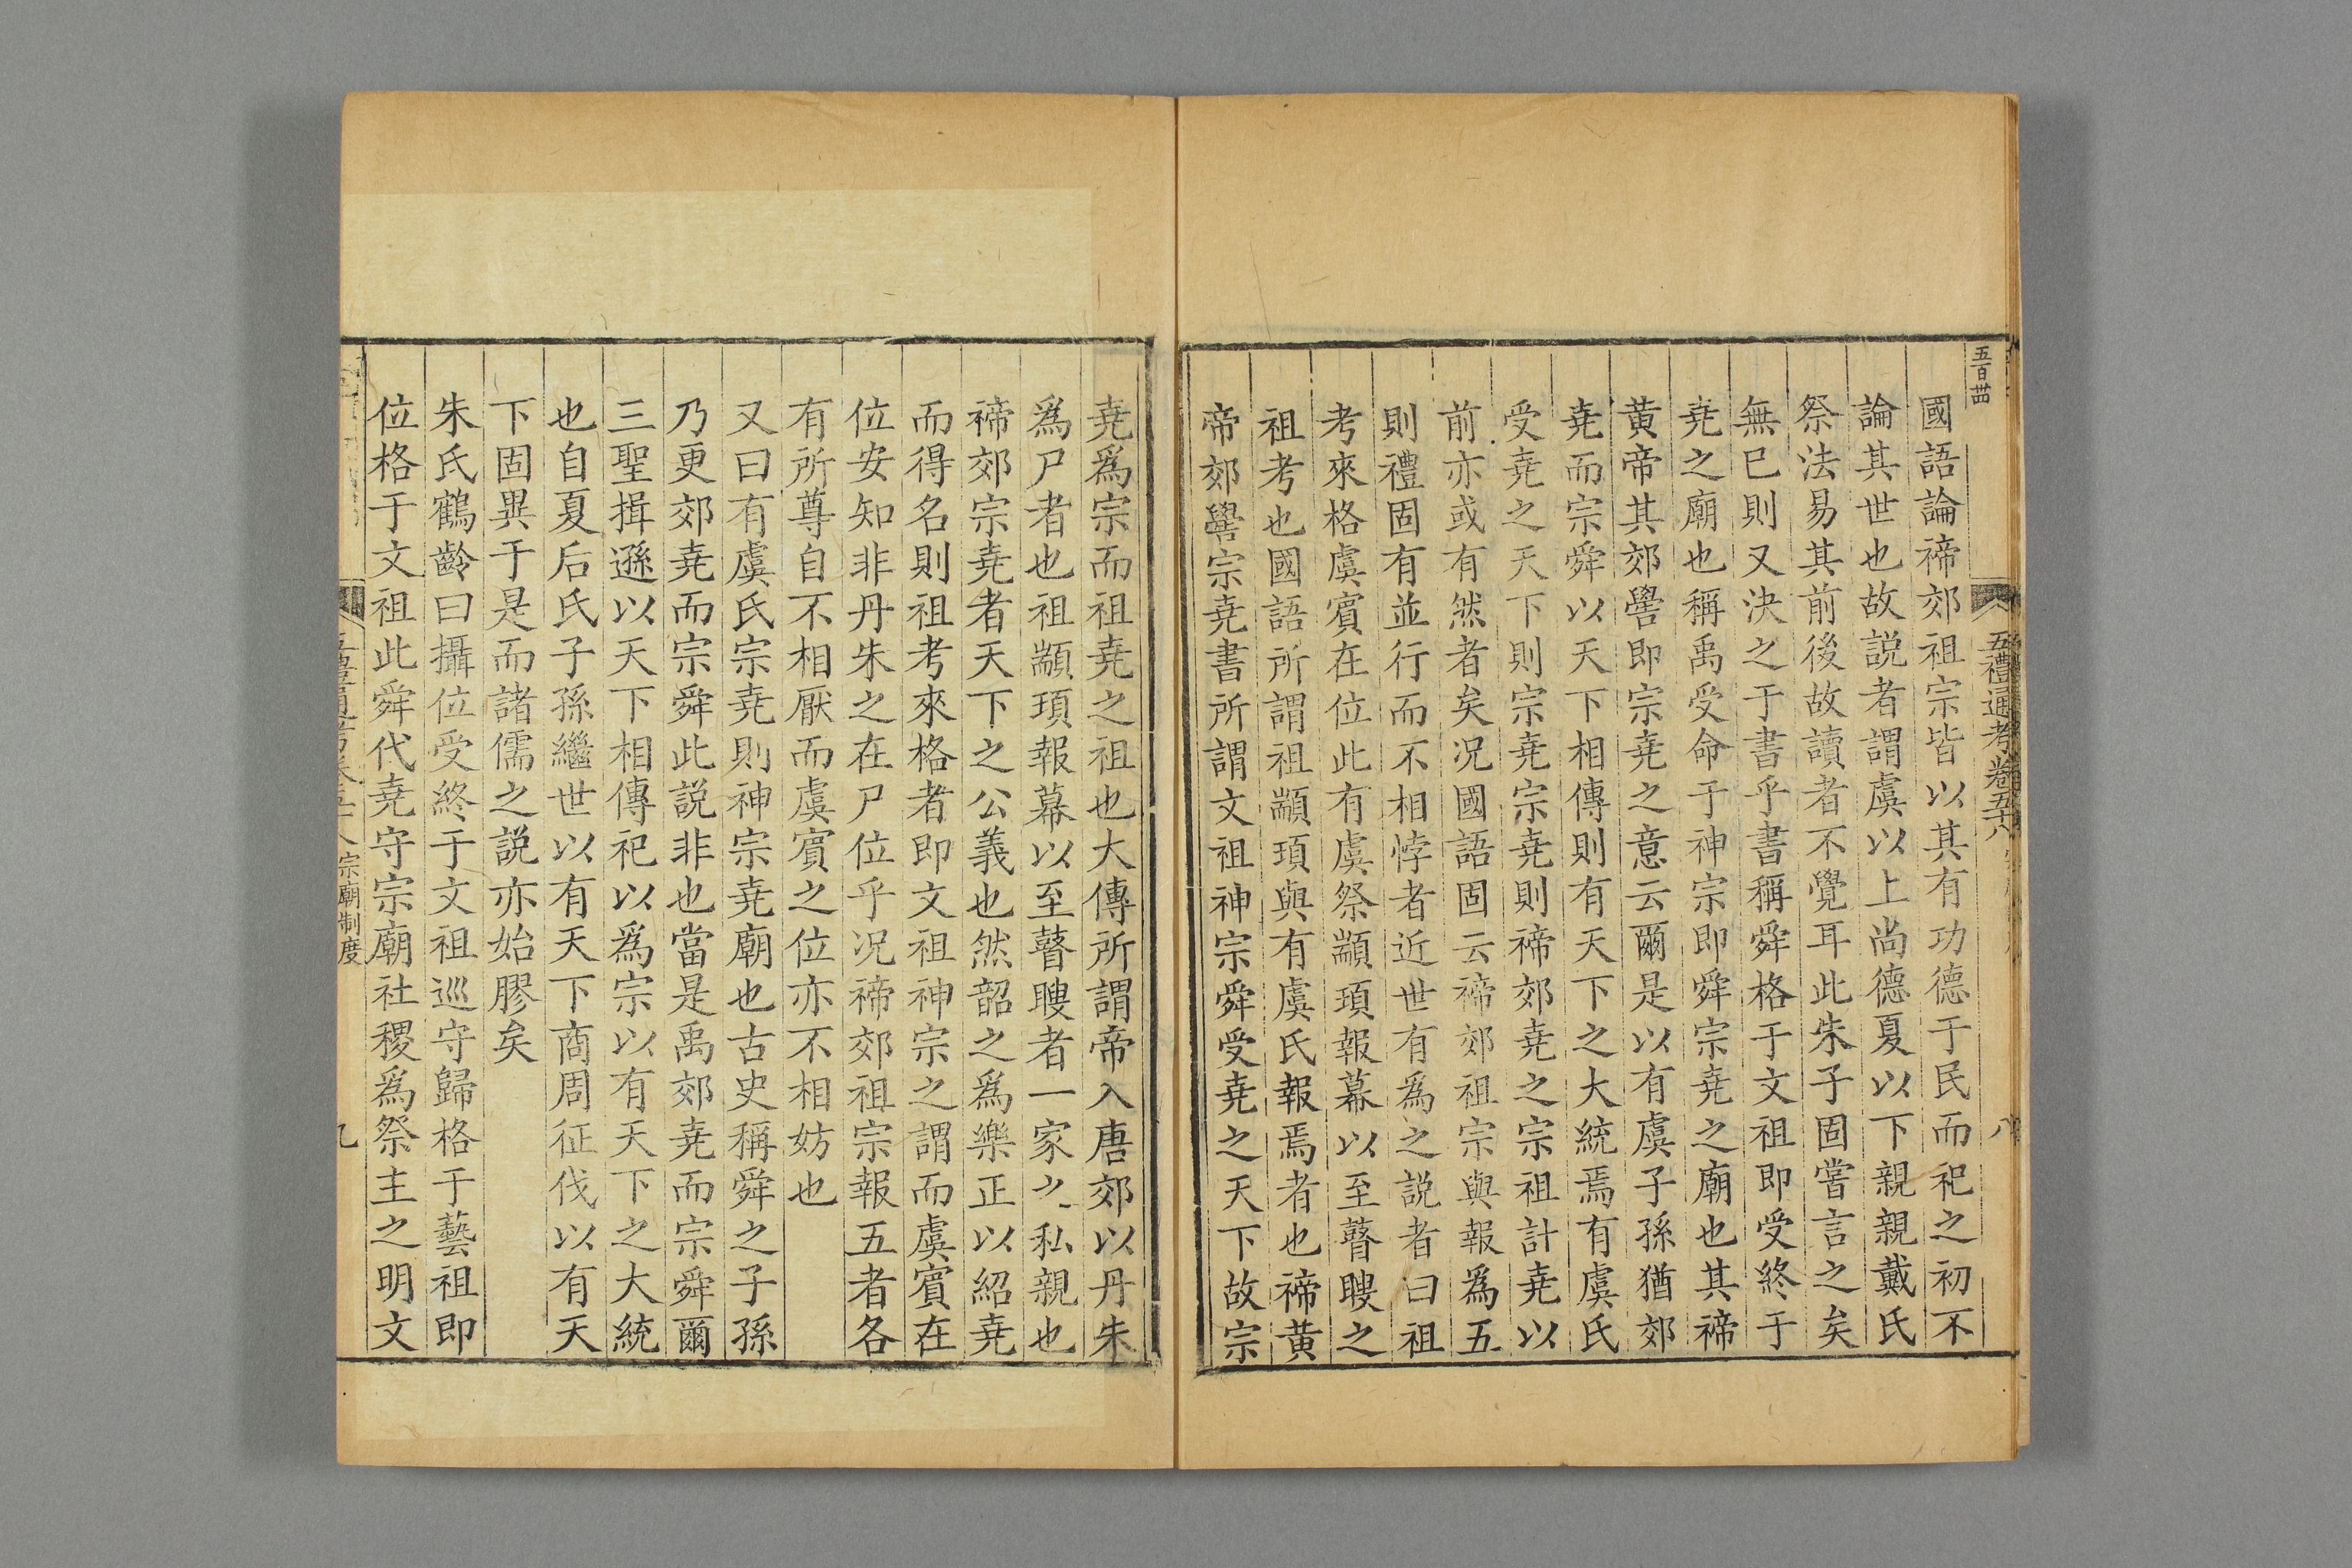 五百卌
五禮通考卷五十八
八
國語論禘郊祖宗皆以其有功德于民而祀之初不
論其世也故説者謂虞以上尚德夏以下親親戴氏
祭法易其前後故讀者不覺耳此朱子固嘗言之矣
無已則又決之于書乎書稱舜格于文祖即受終于
堯之廟也稱禹受命于神宗即舜宗堯之廟也其禘
黄帝其郊嚳即宗堯之意云爾是以有虞子孫猶郊
堯而宗舜以天下相傳則有天下之大統焉有虞氏
受堯之天下則宗堯宗堯則禘郊堯之宗祖計堯以
前亦或有然者矣况國語固云禘郊祖宗與報爲五
則禮固有並行而不相悖者近世有爲之説者曰祖
考來格虞賓在位此有虞祭顓頊報幕以至瞽瞍之
祖考也國語所謂祖顓頊與有虞氏報焉者也禘黄
帝郊嚳宗堯書所謂文祖神宗舜受堯之天下故宗
堯爲宗而祖堯之祖也大傳所謂帝入唐郊以丹朱
爲尸者也祖顓頊報幕以至瞽瞍者一家之私親也
禘郊宗堯者天下之公義也然韶之爲樂正以紹堯
而得名則祖考來格者即文祖神宗之謂而虞賓在
位安知非丹朱之在尸位乎况禘郊祖宗報五者各
有所尊自不相厭而虞賓之位亦不相妨也
又曰有虞氏宗堯則神宗堯廟也古史稱舜之子孫
乃更郊堯而宗舜此説非也當是禹郊堯而宗舜爾
三聖揖遜以天下相傳祀以爲宗以有天下之大統
也自夏后氏子孫繼世以有天下商周征伐以有天
下固異于是而諸儒之説亦始膠矣
朱氏鶴齡曰攝位受終于文祖巡守歸格于藝祖即
位格于文祖此舜代堯守宗廟社稷爲祭主之明文
宗廟制度
九